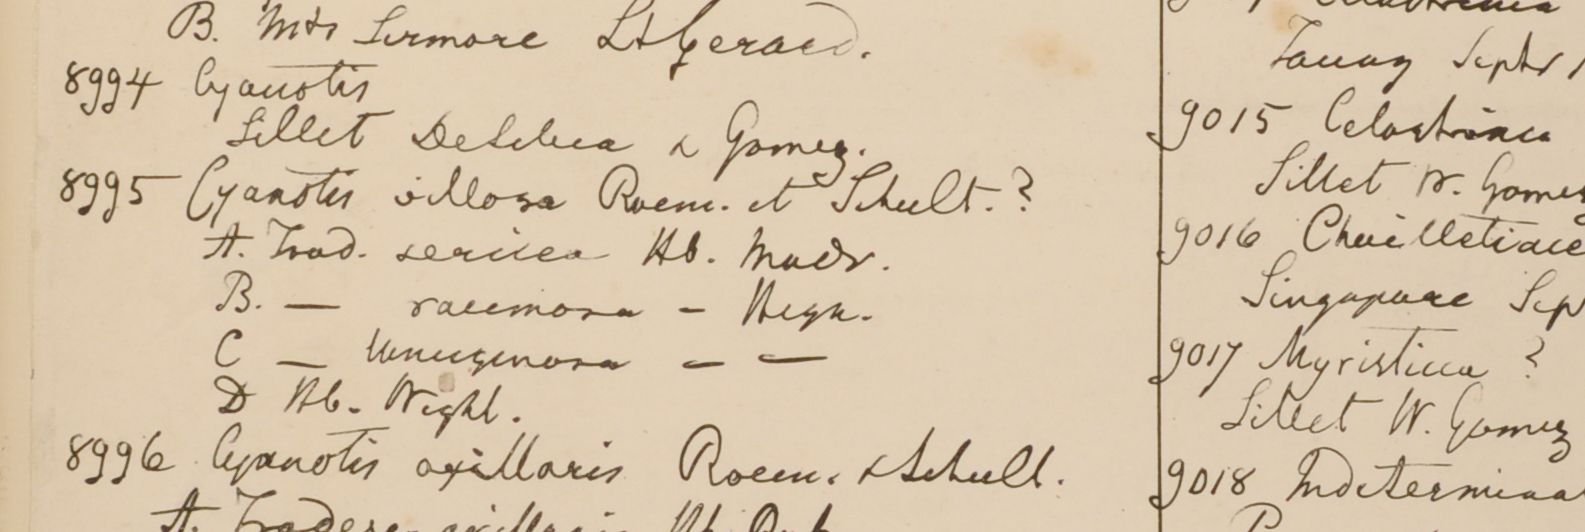 B. Mts Sirmore Lt Gerard.
8994 Cyanotis
Sillet DeSilva & Gomez.
8995 Cyanotis villosa Roem. et Schult.?
A. Trad. sericea Hb. Madr.
B. — racemosa – Heyn.
C — lanuginosa – —
D Hb. Wight.
8996 Cyanotis axillaris Roem. & Schult.
A. axillaris Hb.
Tavoy Septr
9015 Celastrinea
Sillet W. Gomez
9016 Chailletiaceae
Singapore Sep
9017 Myristica ?
Sillet W. Gomez
9018 Indetermina